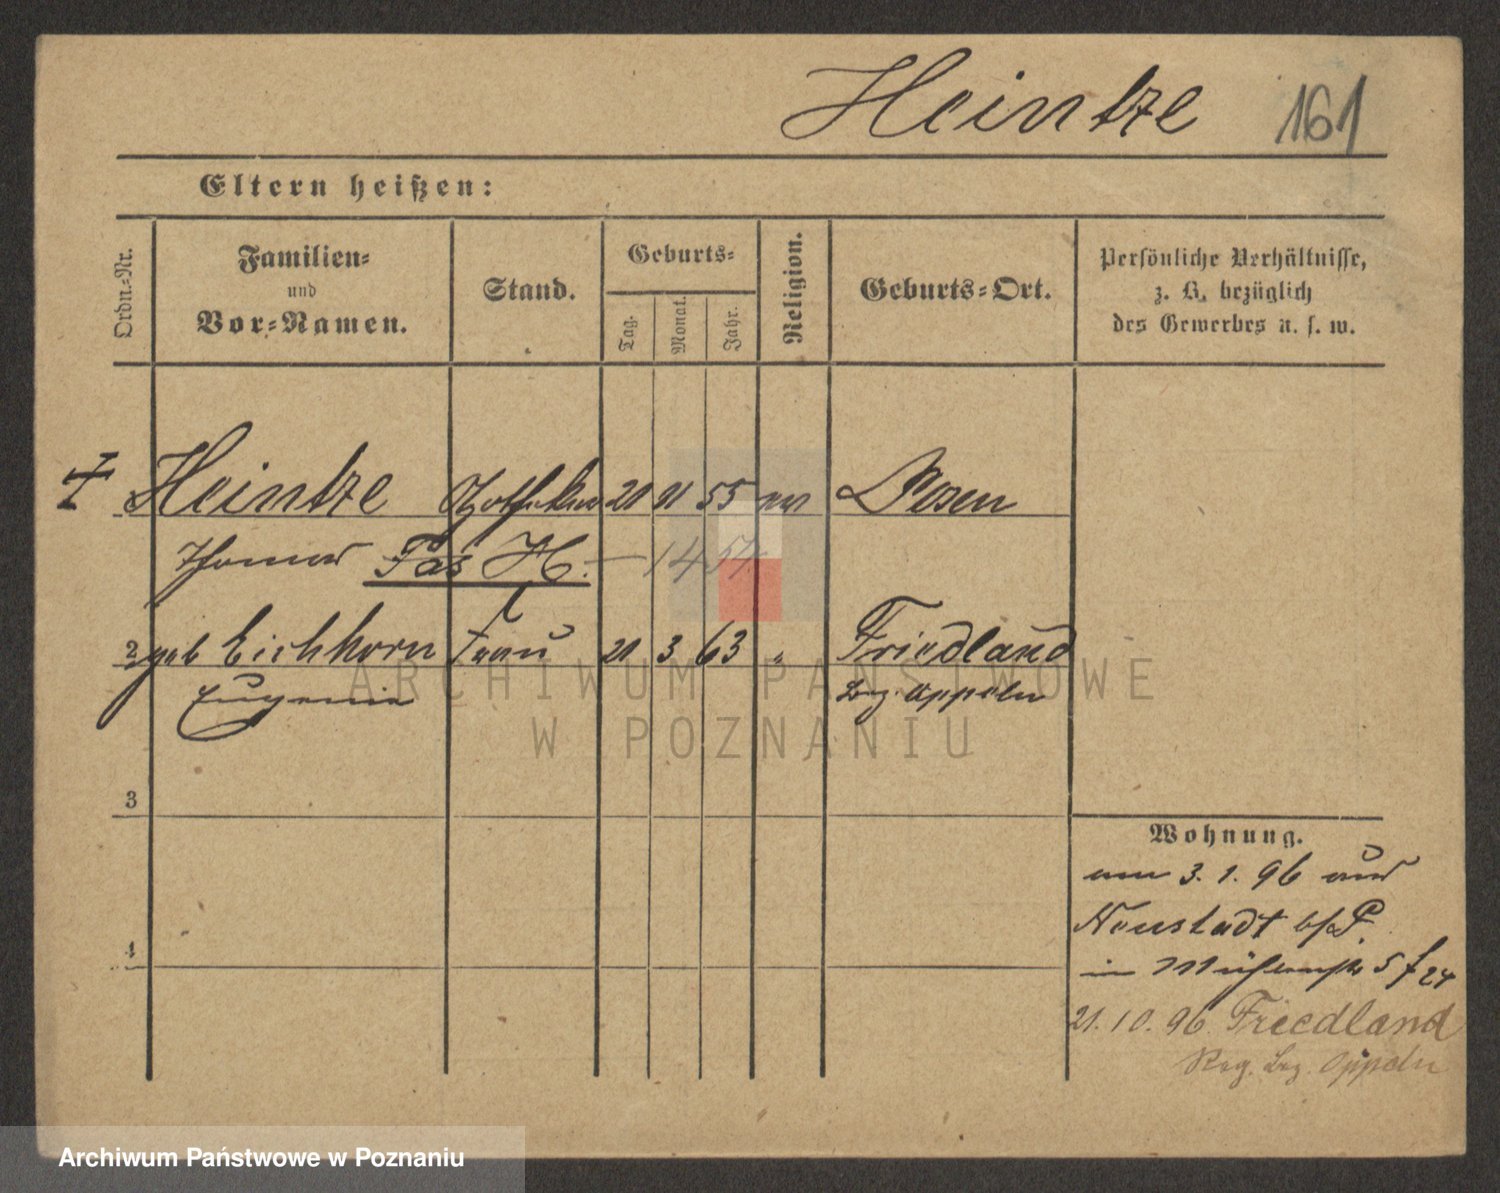 Heintze 161
Eltern heißen:
Ordn.=Nr.
Familien=
und
Vor=Namen.
Stand.
Geburts=
Tag.
Monat.
Jahr.
Religion.
Geburts=Ort.
Persönliche Verhältnisse,
z. B. bezüglich
des Gewerbes u. s. w.
Heintze Apotheker 21 11 55 Posen
Thomas Fas H. — 1454
2 geb Eichhorn Frau 21 3 63 " Friedland
Eugenie Bez. Oppeln
ARCHIWUM PAŃSTWOWE
W POZNANIU
3
4
Wohnung.
am 3. 1. 96 aus
Neustadt b/P.
in Mühlenstr 5
21. 10. 96 Friedland
Reg. Bez. Oppeln
Archiwum Państwowe w Poznaniu